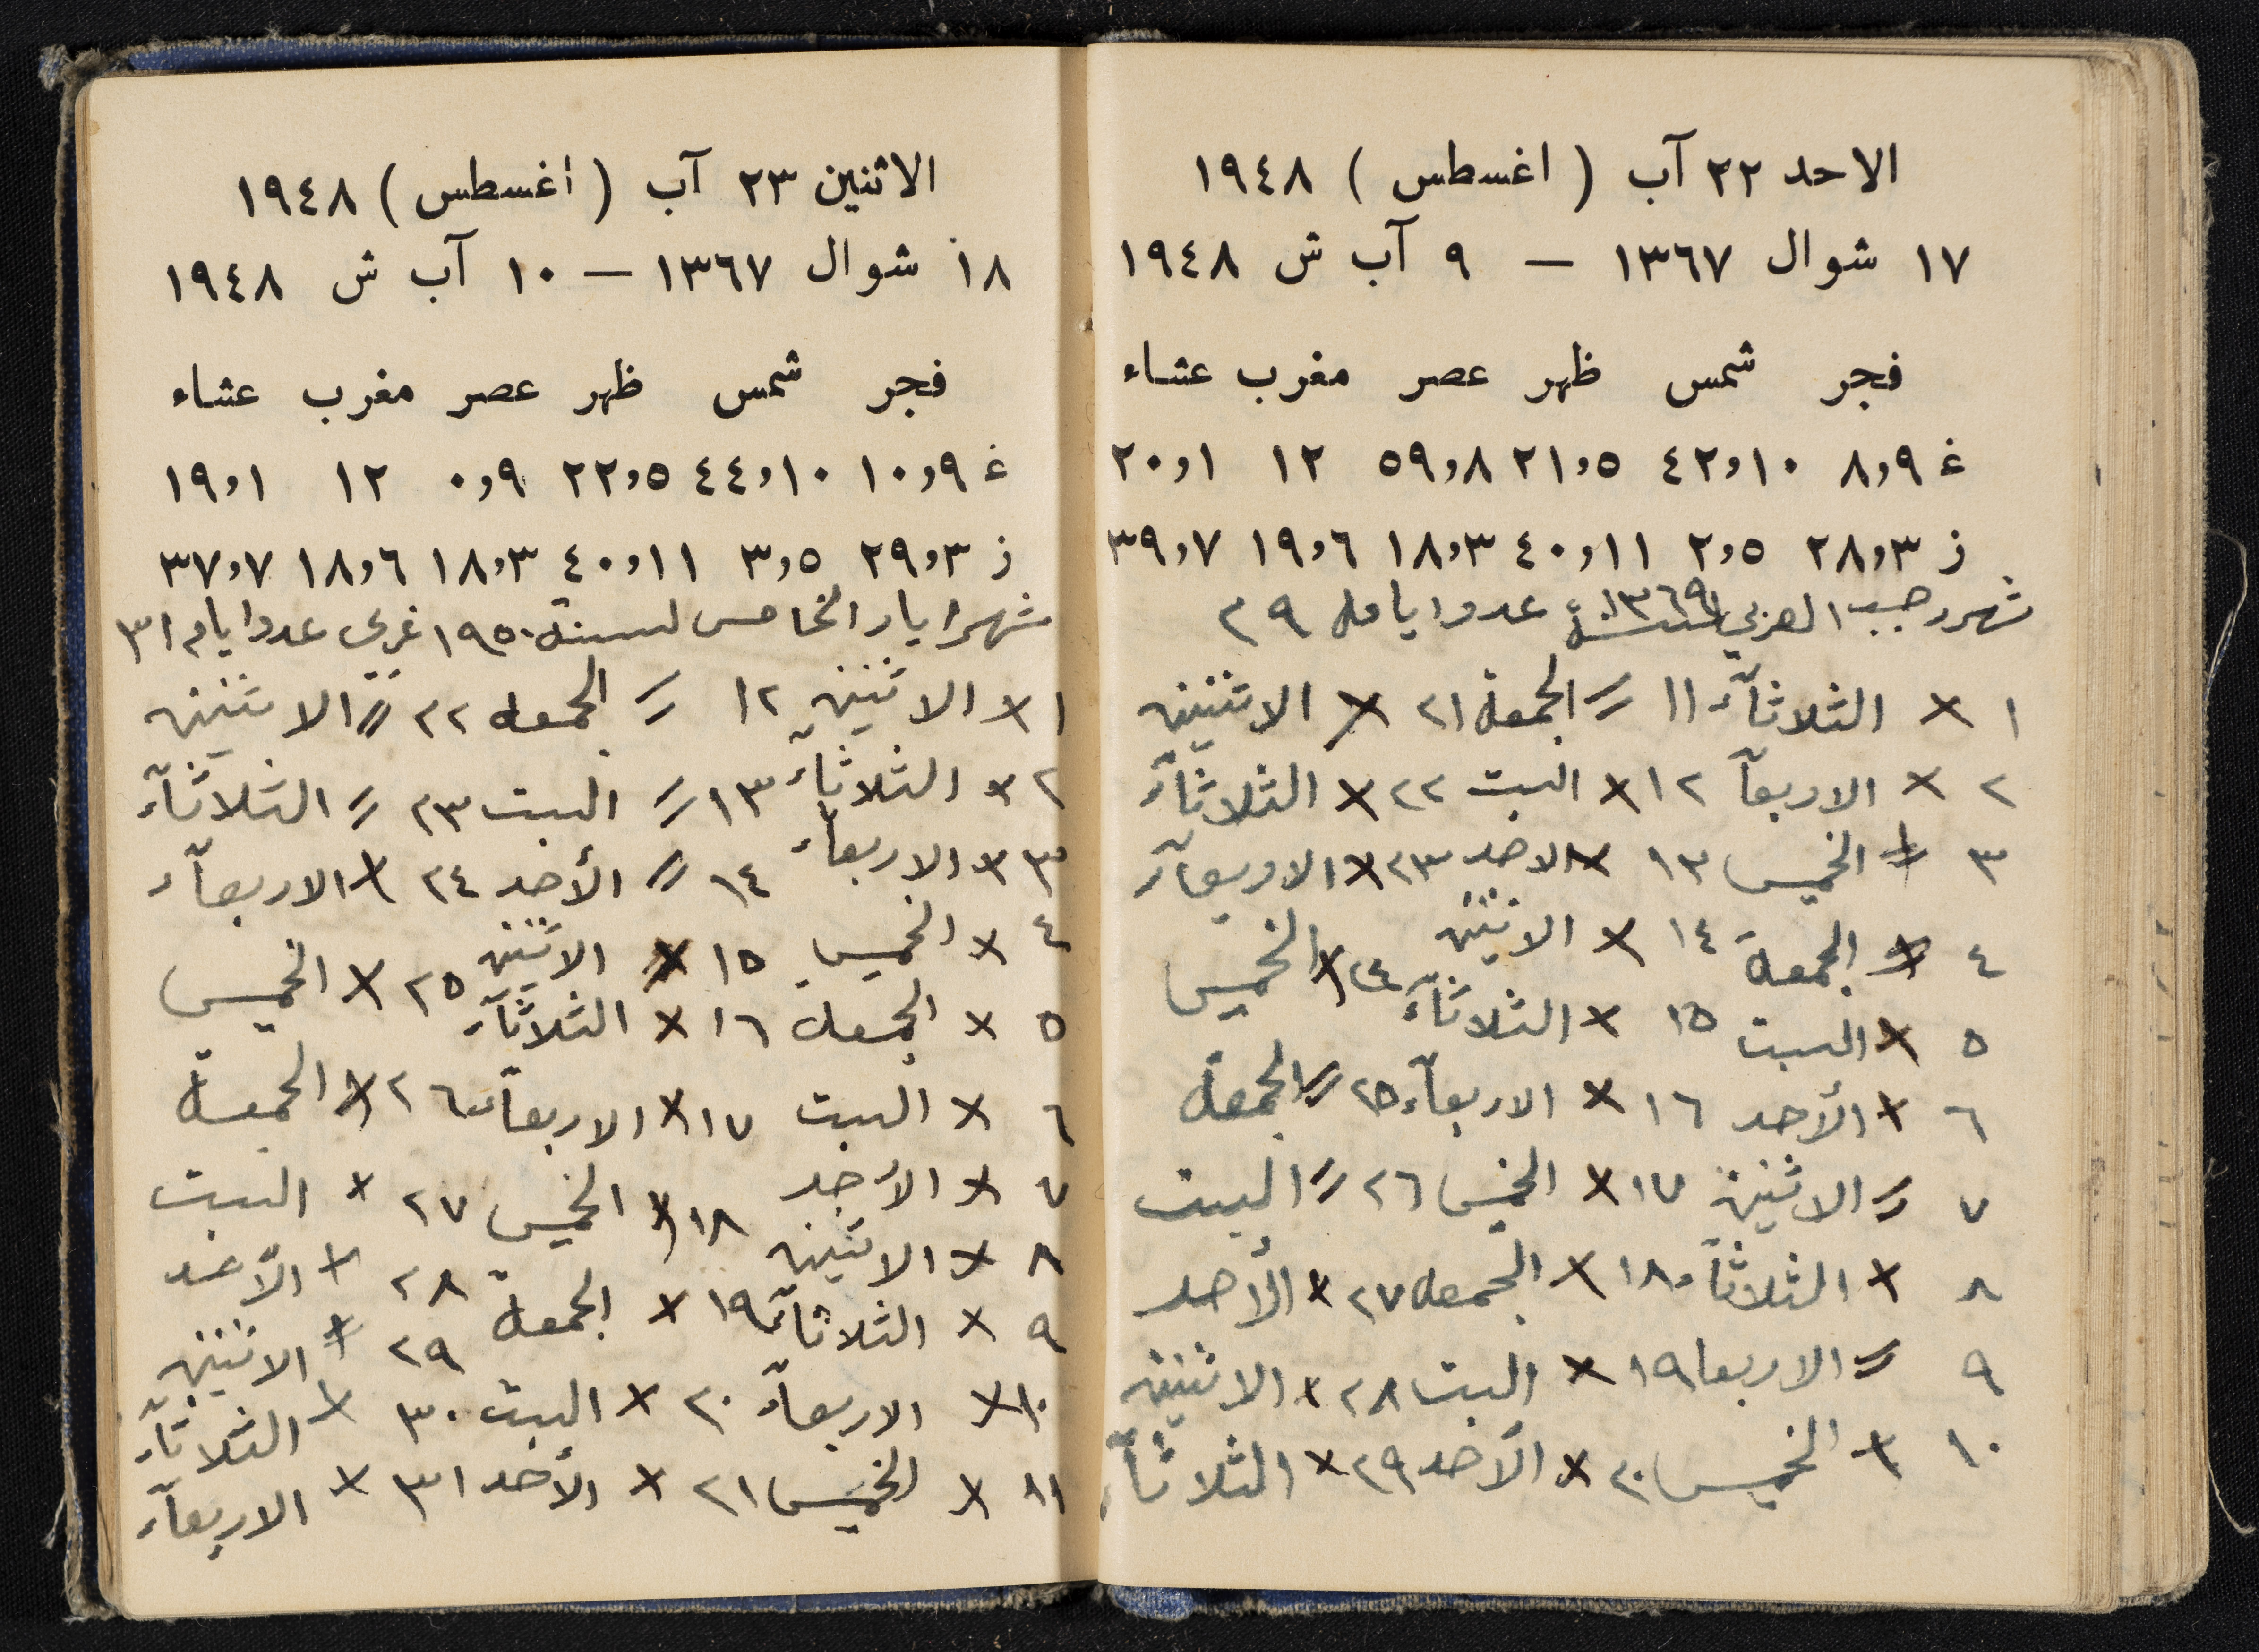 الاحد ٢٢ آب ( اغسطس ) ١٩٤٨
١٧ شوال ١٣٦٧ — ٩ آب ش ١٩٤٨
فجر شمس ظهر عصر مغرب عشاء
غ ٨,٩ ٤٢,١٠ ٢١,٥ ٥٩,٨ ١٢ ٢٠,١
ز ٢٨,٣ ٢,٥ ٤٠,١١ ١٨,٣ ١٩,٦ ٣٩,٧
شهر رجب العربي لسنة ١٣٦٩ عدد ايامه ٢٩
١ × الثلاثآء ١١ = الجمعة ٢١ × الاثنين
٢ × الاربعآ ١٢ × السبت ٢٢ × الثلاثآء
٣ × الخميس ١٣ × الاحد ٢٣ × الاربعآء
٤ × الجمعة ١٤ × الاثنين ٢٤ × الخميس
٥ × السبت ١٥ × الثلاثآء
٦ × الأحد ١٦ × الاربعآء ٢٥ = الجمعة
٧ = الاثنين ١٧ × الخميس ٢٦ = السبت
٨ × الثلاثآء ١٨ × الجمعه ٢٧ × الأحد
٩ = الاربعا ١٩ × السبت ٢٨ × الاثنين
١٠ × الخميس ٢٠ × الأحد ٢٩ × الثلاثآء
الاثنين ٢٣ آب ( اغسطس ) ١٩٤٨
١٨ شوال ١٣٦٧ — ١٠ آب ش ١٩٤٨
فجر شمس ظهر عصر مغرب عشاء
غ ١٠,٩ ٤٤,١٠ ٢٢,٥ ٠,٩ ١٢ ١٩,١
ز ٢٩,٣ ٣,٥ ٤٠,١١ ١٨,٣ ١٨,٦ ٣٧,٧
شهر ايار الخامس لسنة ١٩٥٠ غربي عدد ايام ٣١
١ × الاثنين ١٢ = الجمعه ٢٢ = الاثنين
٢ × الثلاثآء ١٣ = السبت ٢٣ = الثلاثآء
٣ × الاربعآء ١٤ = الأحد ٢٤ × الاربعآء
٤ × الخميس ١٥ × الاثنين ٢٥ × الخميس
٥ × الجمعه ١٦ × الثلاثآء
٦ × السبت ١٧ × الاربعآء ٢٦ × الجمعة
٧ × الأحد ١٨ × الخميس ٢٧ × السبت
٨ × الاثنين ١٩ × الجمعة ٢٨ × الأحد
٩ × الثلاثآء ٢٩ × الاثنين
١٠ × الاربعآء ٢٠ × السبت ٣٠ × الثلاثآء
١١ × الخميس ٢١ × الأحد ٣١ × الاربعآء